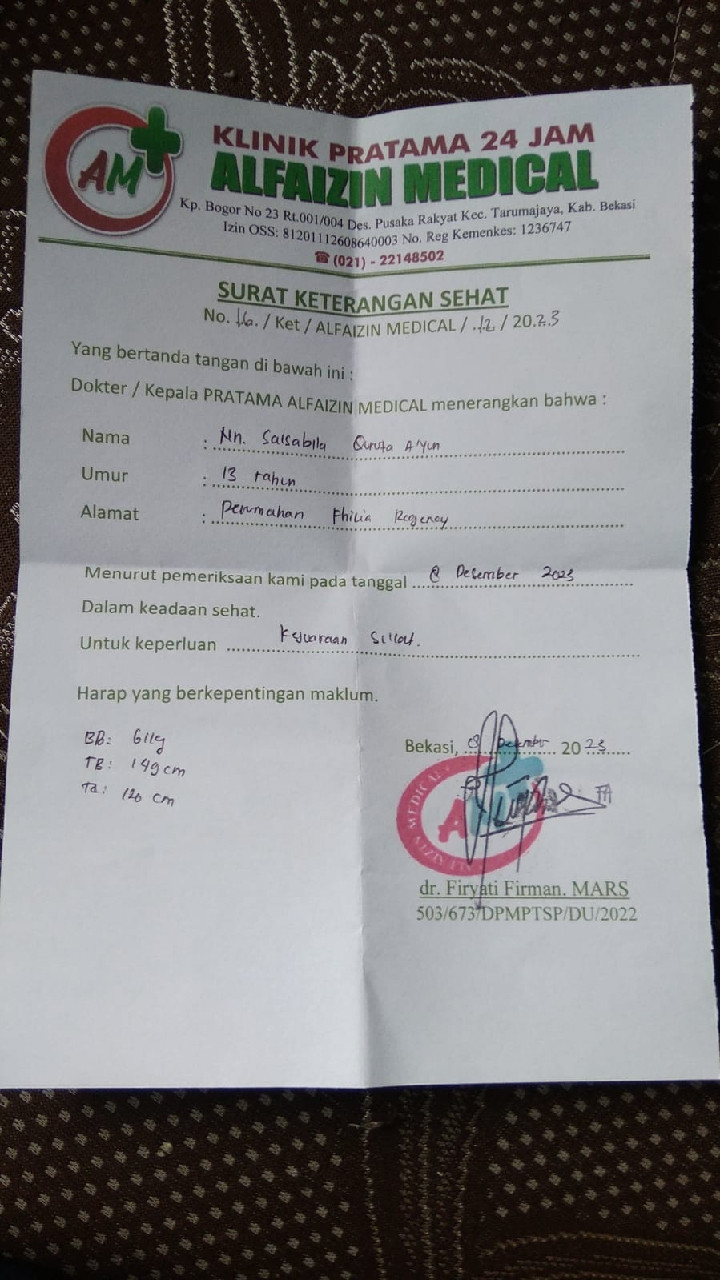 AM
KLINIK PRATAMA 24 JAM
ALFAIZIN MEDICAL
Kp. Bogor No 23 Rt.001/004 Des. Pusaka Rakyat Kec. Tarumajaya, Kab. Bekasi
Izin OSS: 81201112608640003 No. Reg Kemenkes: 1236747
☎ (021) - 22148502
SURAT KETERANGAN SEHAT
No. 16. / Ket / ALFAIZIN MEDICAL / 12 / 2023
Yang bertanda tangan di bawah ini :
Dokter / Kepala PRATAMA ALFAIZIN MEDICAL menerangkan bahwa :
Nama : Nn. Salsabila A'yun
Umur : 13 tahun
Alamat : Perumahan Philia Regency
Menurut pemeriksaan kami pada tanggal 8 Desember 2023
Dalam keadaan sehat.
Untuk keperluan Kejuaraan Silat.
Harap yang berkepentingan maklum.
BB: 61kg
TB: 149 cm
Bekasi, 08 Desember 2023
MEDICAL
dr. Firyati Firman. MARS
503/673/DPMPTSP/DU/2022